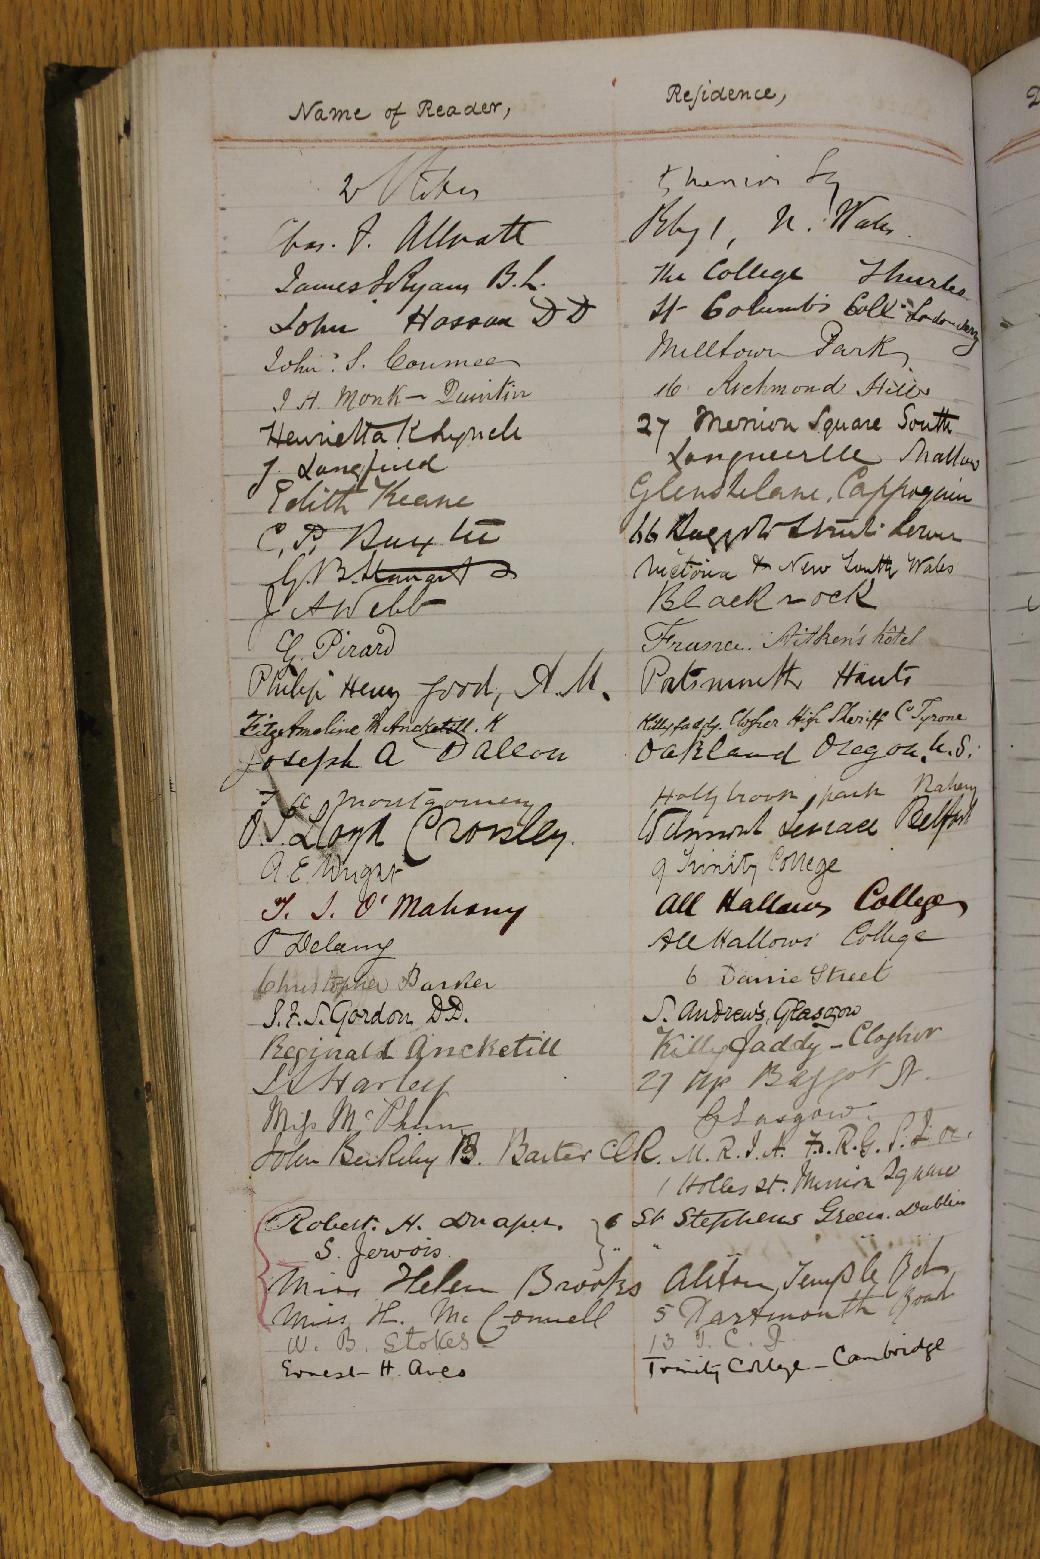 Name of Reader, Residence,
W Stokes Merrion Sq
Chas. F. Allnatt Rhyl, N. Wales.
James J Ryan B.L. The College Thurles
John Hassan DD St Columb's Coll. Londonderry
John S. Milltown Park
J H. Monk - Quintin 16 Richmond Hill
Henrietta K Lynch 27 Merrion Square South
J. Longfield Longueville Mallow
Edith Keane Glenshelane, Cappoquin
C. P. 66 Baggot Street Lower
G. B. Victoria & New South Wales
J A Webb Blackrock
G. Pirard France. Aitken's hôtel
Philip Henry Good, A.M. Portsmouth Hants
Ancketill. Killyfaddy. Clogher High Sheriff C Tyrone
Joseph A Oakland Oregon. U.S.
Montgomery Hollybrook park Raheny
Lloyd Crossley. Wilmont terrace Belfast
A E Wright 9 Trinity College
T. J. O'Mahony All Hallows College
P Delany All Hallows College
Christopher Barker 6 Dame Street
J.F.S. Gordon D.D. S. Andrew's, Glasgow
Reginald Ancketill Killyfaddy - Clogher
Harley 27 Up Baggot St.
Miss Glasgow.
John B. Baxter M.R.I.A. F.R.G.S.
1 Holles St. Merrion Square
Robert. H. Draper. } 6 St Stephens Green. Dublin
S. Jervois. } " "
Miss Helen Brooks Temple
Miss H. McConnell 5 Dartmouth Road
W. B. Stokes. 13 T. C. D
Ernest H. Aves Trinity College - Cambridge